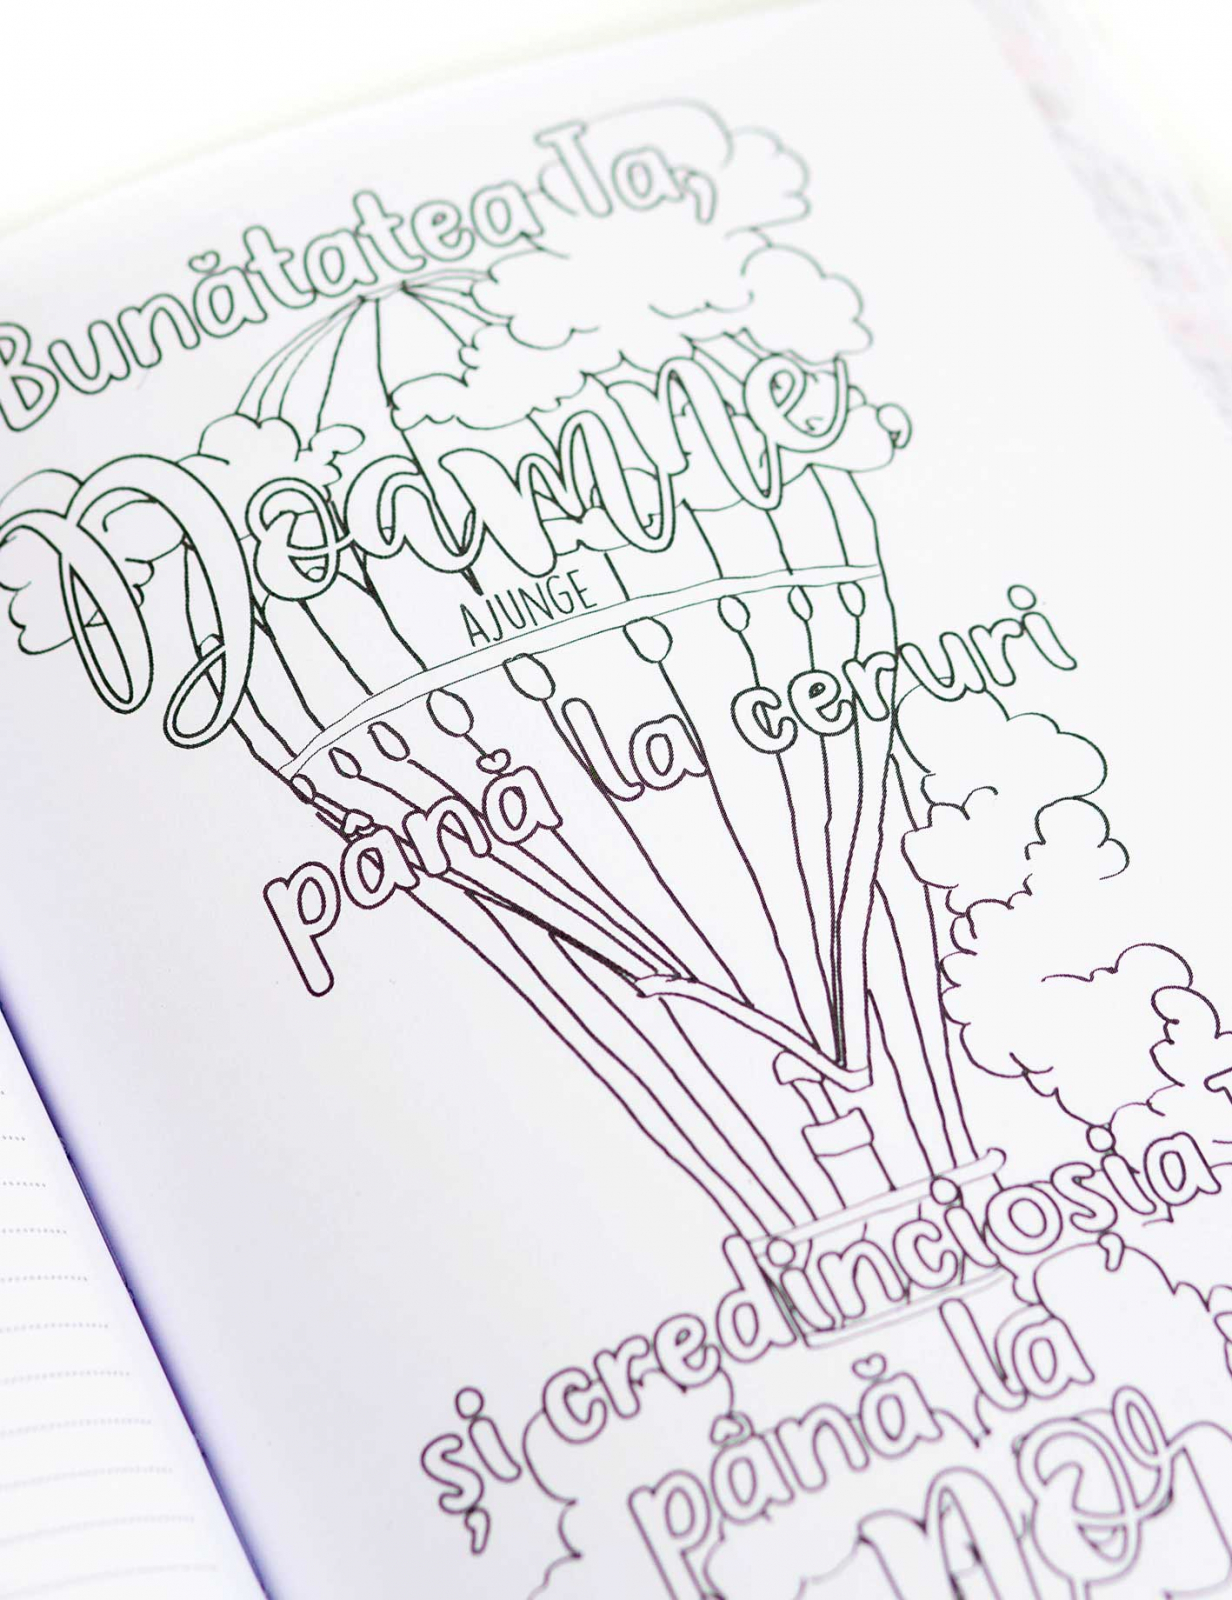 Bunătatea Ta,
Doamne,
AJUNGE
până la ceruri
și credincioșia
până la